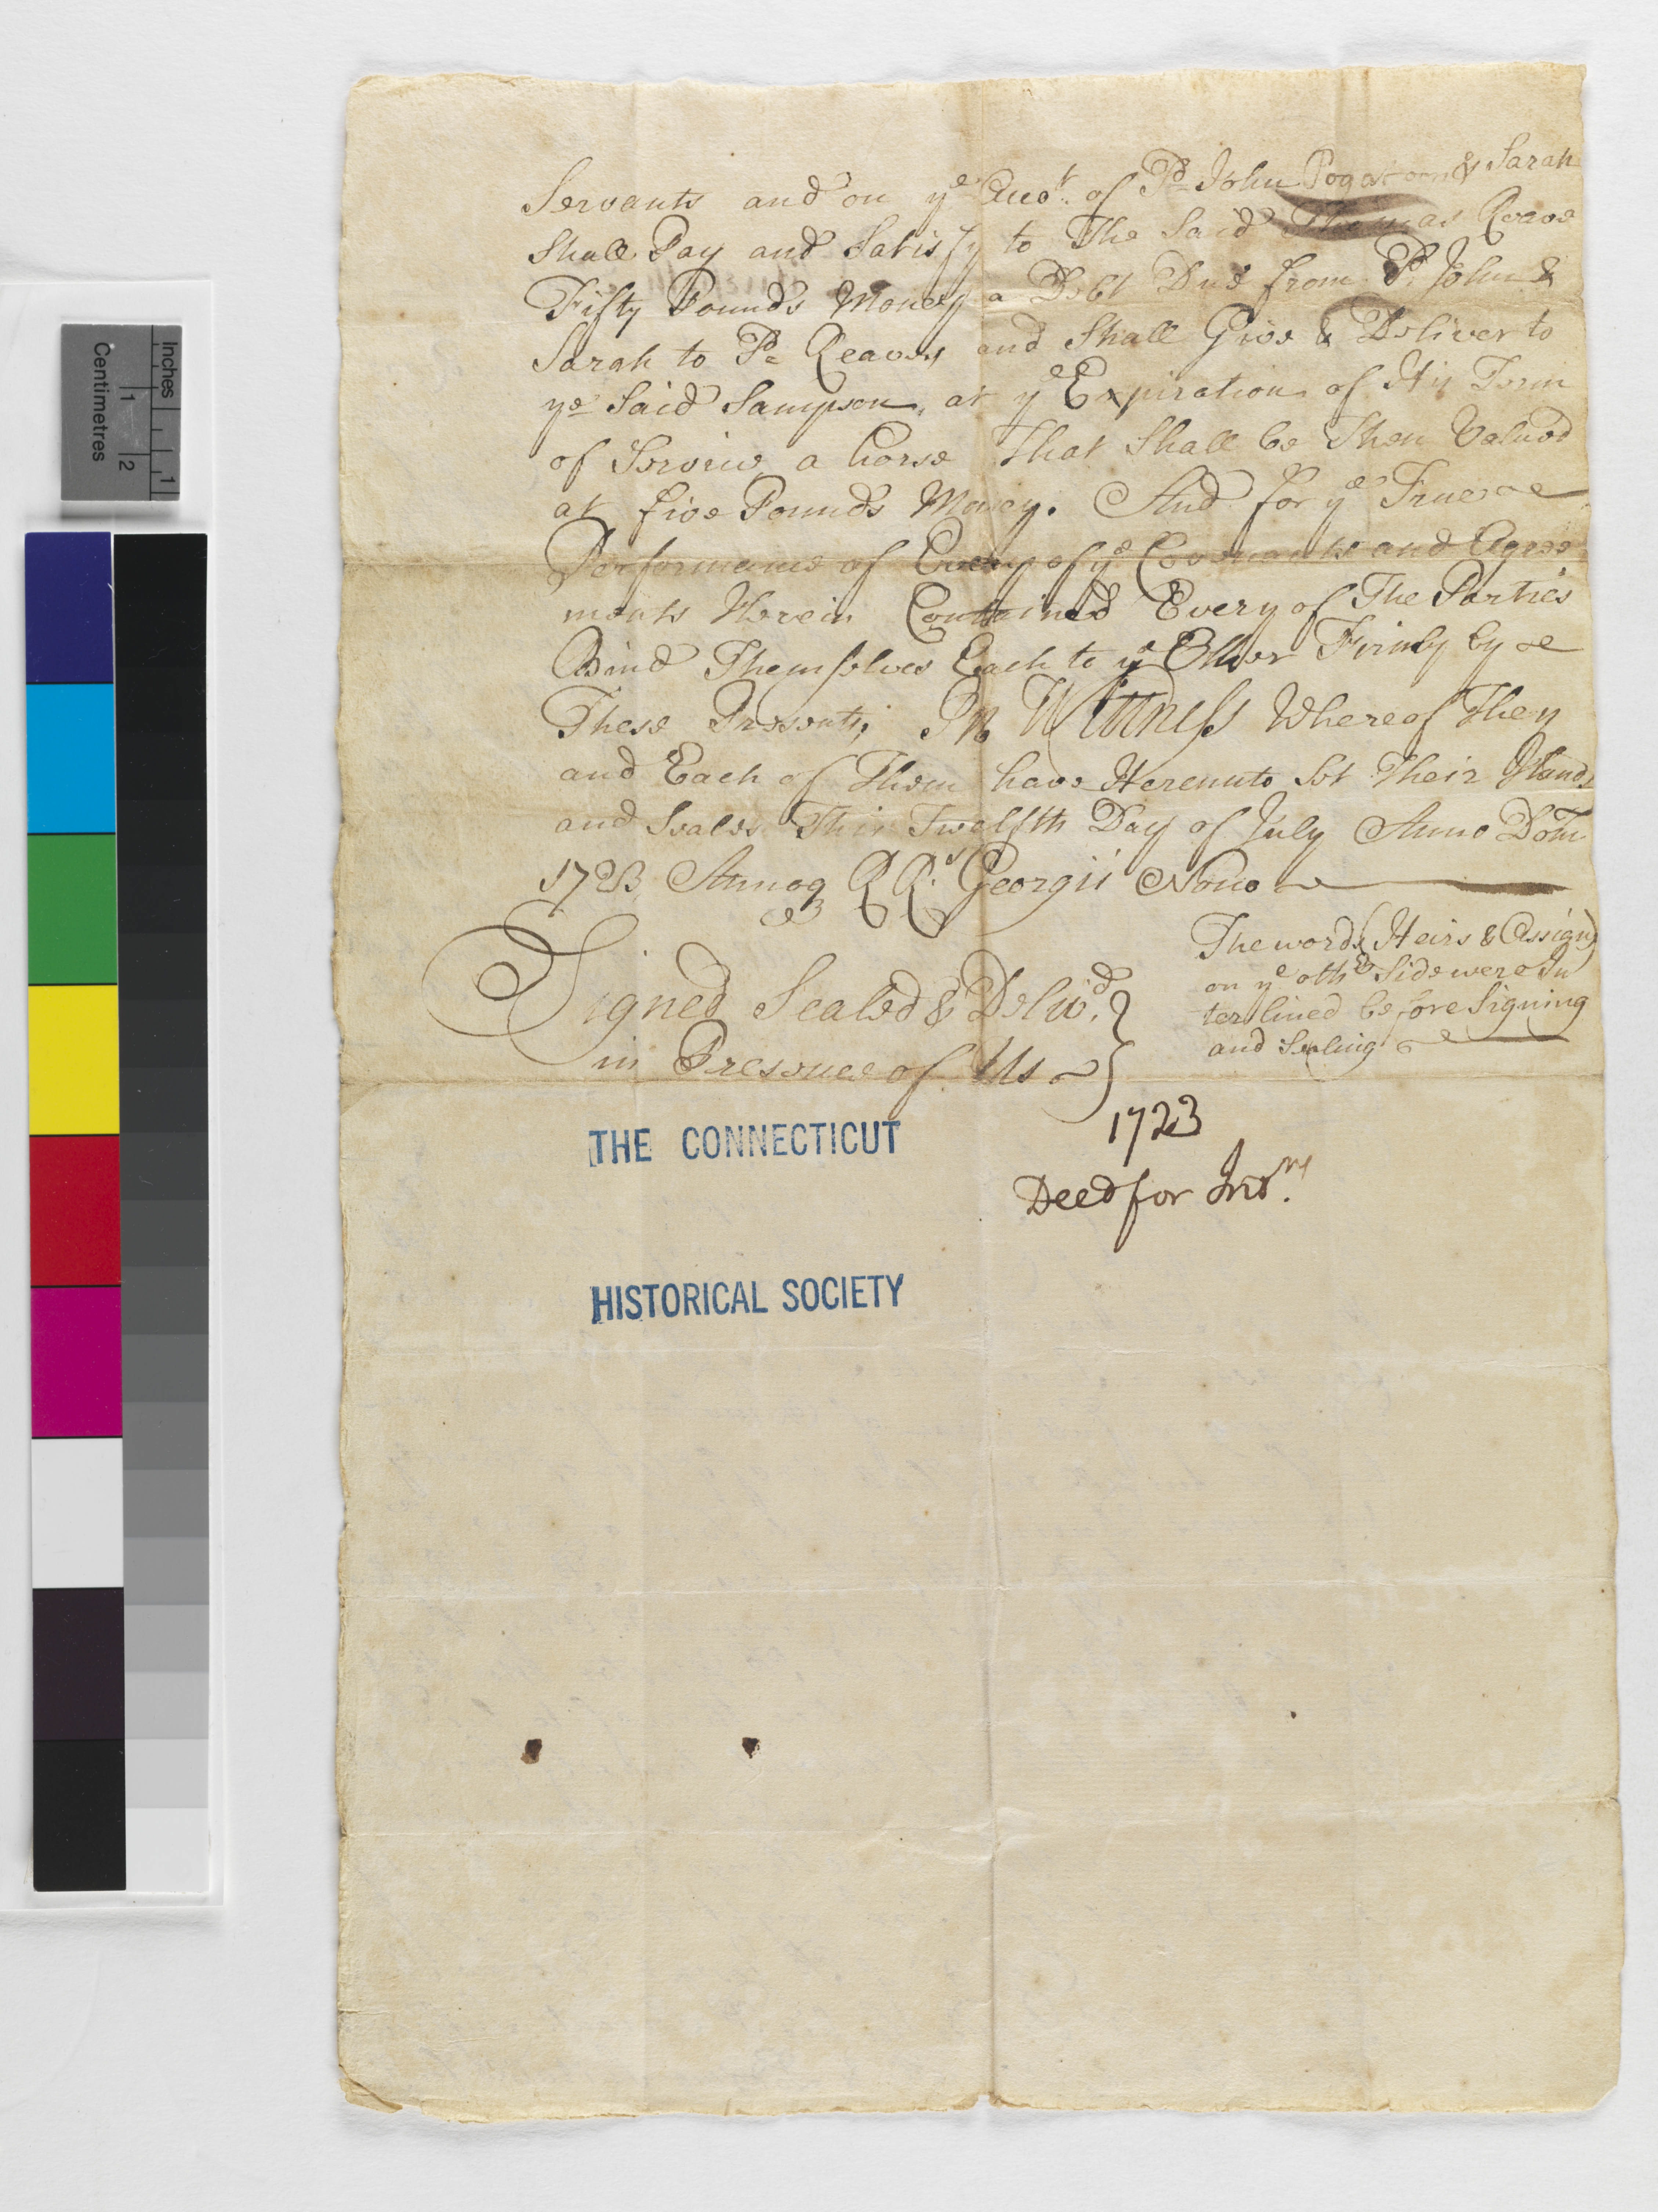 Servants and on ye Accot. of Sd John Pogatoon & Sarah
Shall Pay and Satisfy to The Said Thomas Reeve
Fifty Pounds Money a Debt Due from Sd. John &
Sarah to Sd Reaves and Shall Give & Deliver to
ye Said Sampson, at ye Expiration of His Term
of Service a horse That Shall be Then Valued
at five Pounds Money. And for ye True
Performance of Every of ye Covenants and Agree
ments Herein Contained Every of The Parties
Bind Themselves Each to ye Other Firmly by
These Presents; In Wittness Whereof They
and Each of Them have Hereunto Set Their Hands
and Seales This Twelfth Day of July Anno Dom
1723 Annoq RRs Georgii Nono
The words (Heirs & Assigns)
on ye othr Side were In
terlined before Signing
and Sealing
Signed Sealed & Deliv.d
in Presence of Us
1723
Deed for Indns.
THE CONNECTICUT
HISTORICAL SOCIETY
Inches
1
Centimetres
1
2